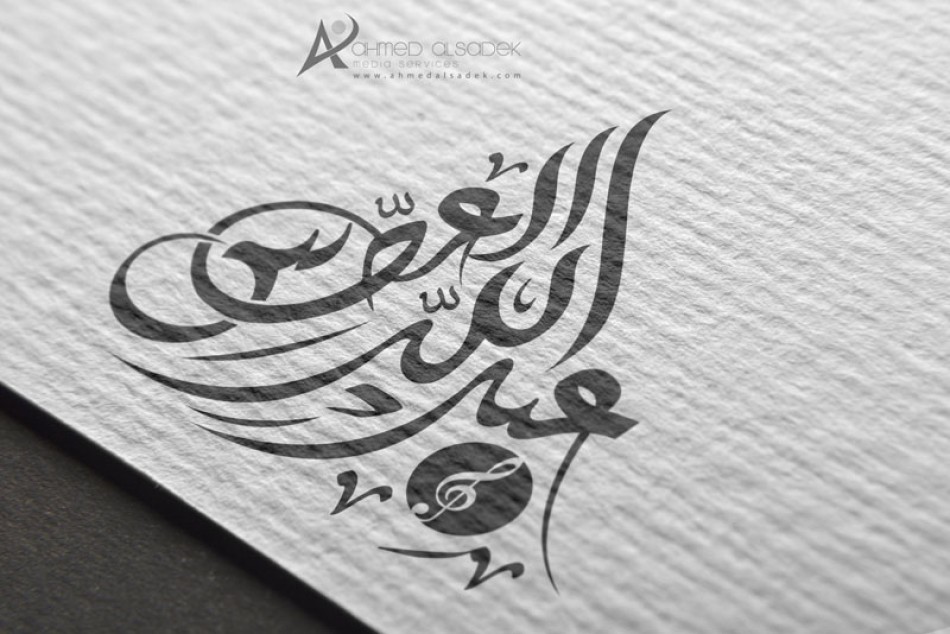 AHMED ALSADEK
media services
www.ahmedalsadek.com
الله
عبد